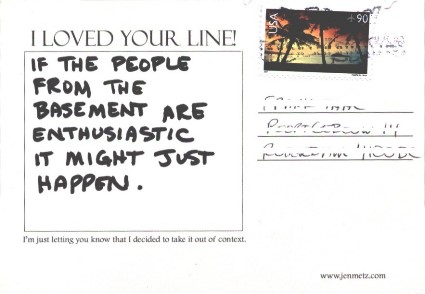 I LOVED YOUR LINE!
IF THE PEOPLE
FROM THE
BASEMENT ARE
ENTHUSIASTIC
IT MIGHT JUST
HAPPEN.
I'm just letting you know that I decided to take it out of context.
USA
+90
www.jenmetz.com